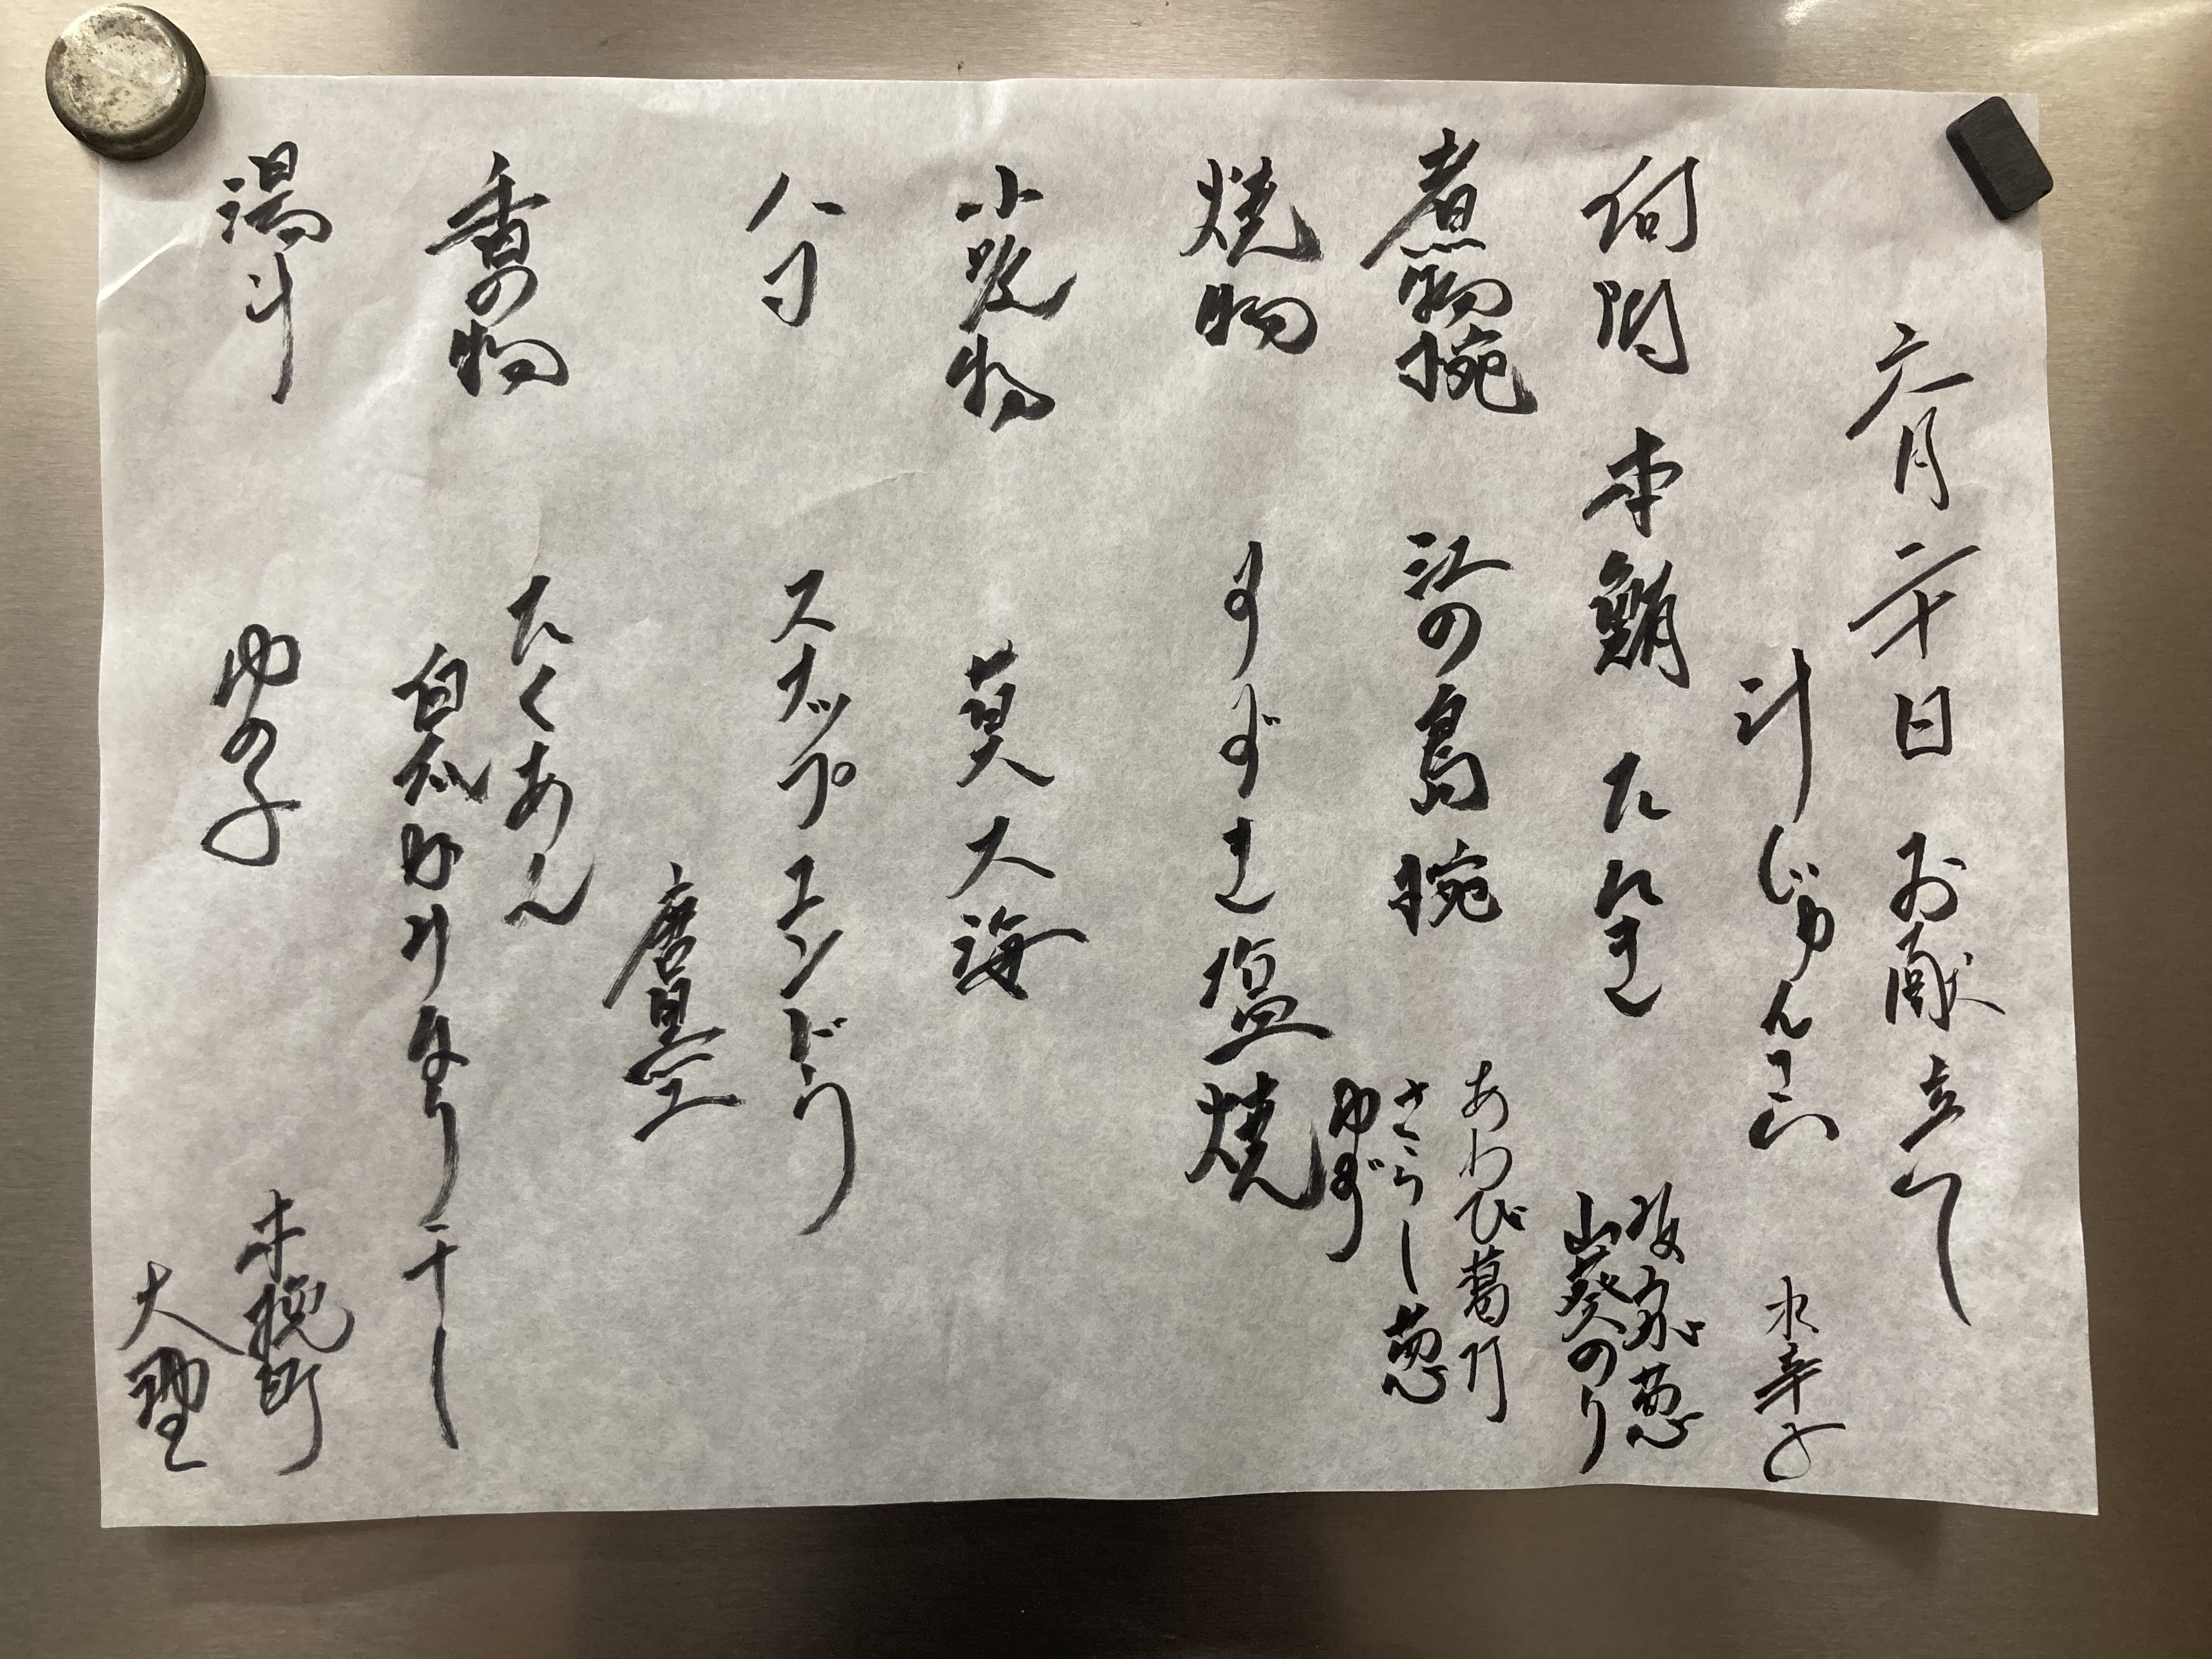 六月二十日 お献立て
汁 じゅんさい 水辛子
向附 本鮪 たたき 浅葱 山葵 のり
煮物椀 江の島椀 あわび葛打 さらし葱 ゆず
焼物 すずき塩焼
小吸物 莫大海
八寸 スナップエンドウ
唐墨
香の物 たくあん
白瓜かみなり干し
湯斗 ゆの子
木挽町
大野